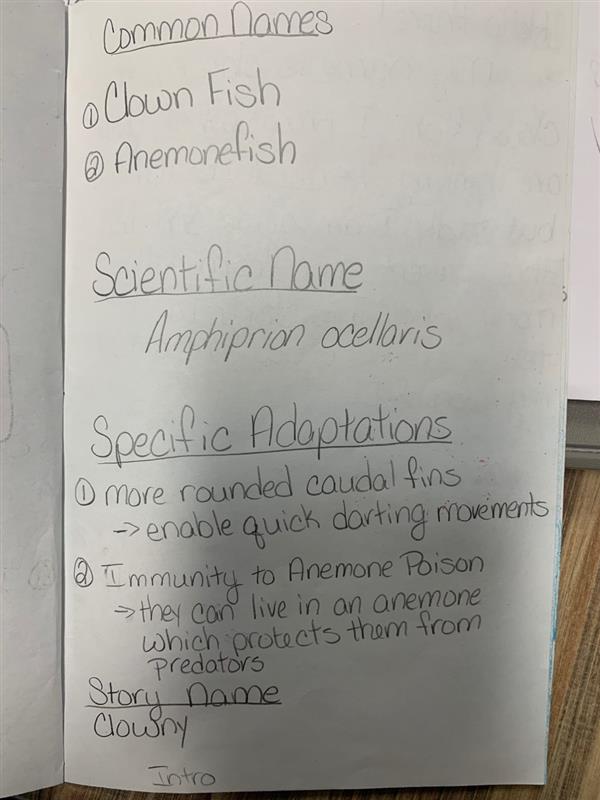 Common Names
① Clown Fish
② Anemonefish
Scientific Name
Amphiprion ocellaris
Specific Adaptations
① more rounded caudal fins
→ enable quick darting movements
② Immunity to Anemone Poison
→ they can live in an anemone
which protects them from
predators
Story Name
Clowny
Intro